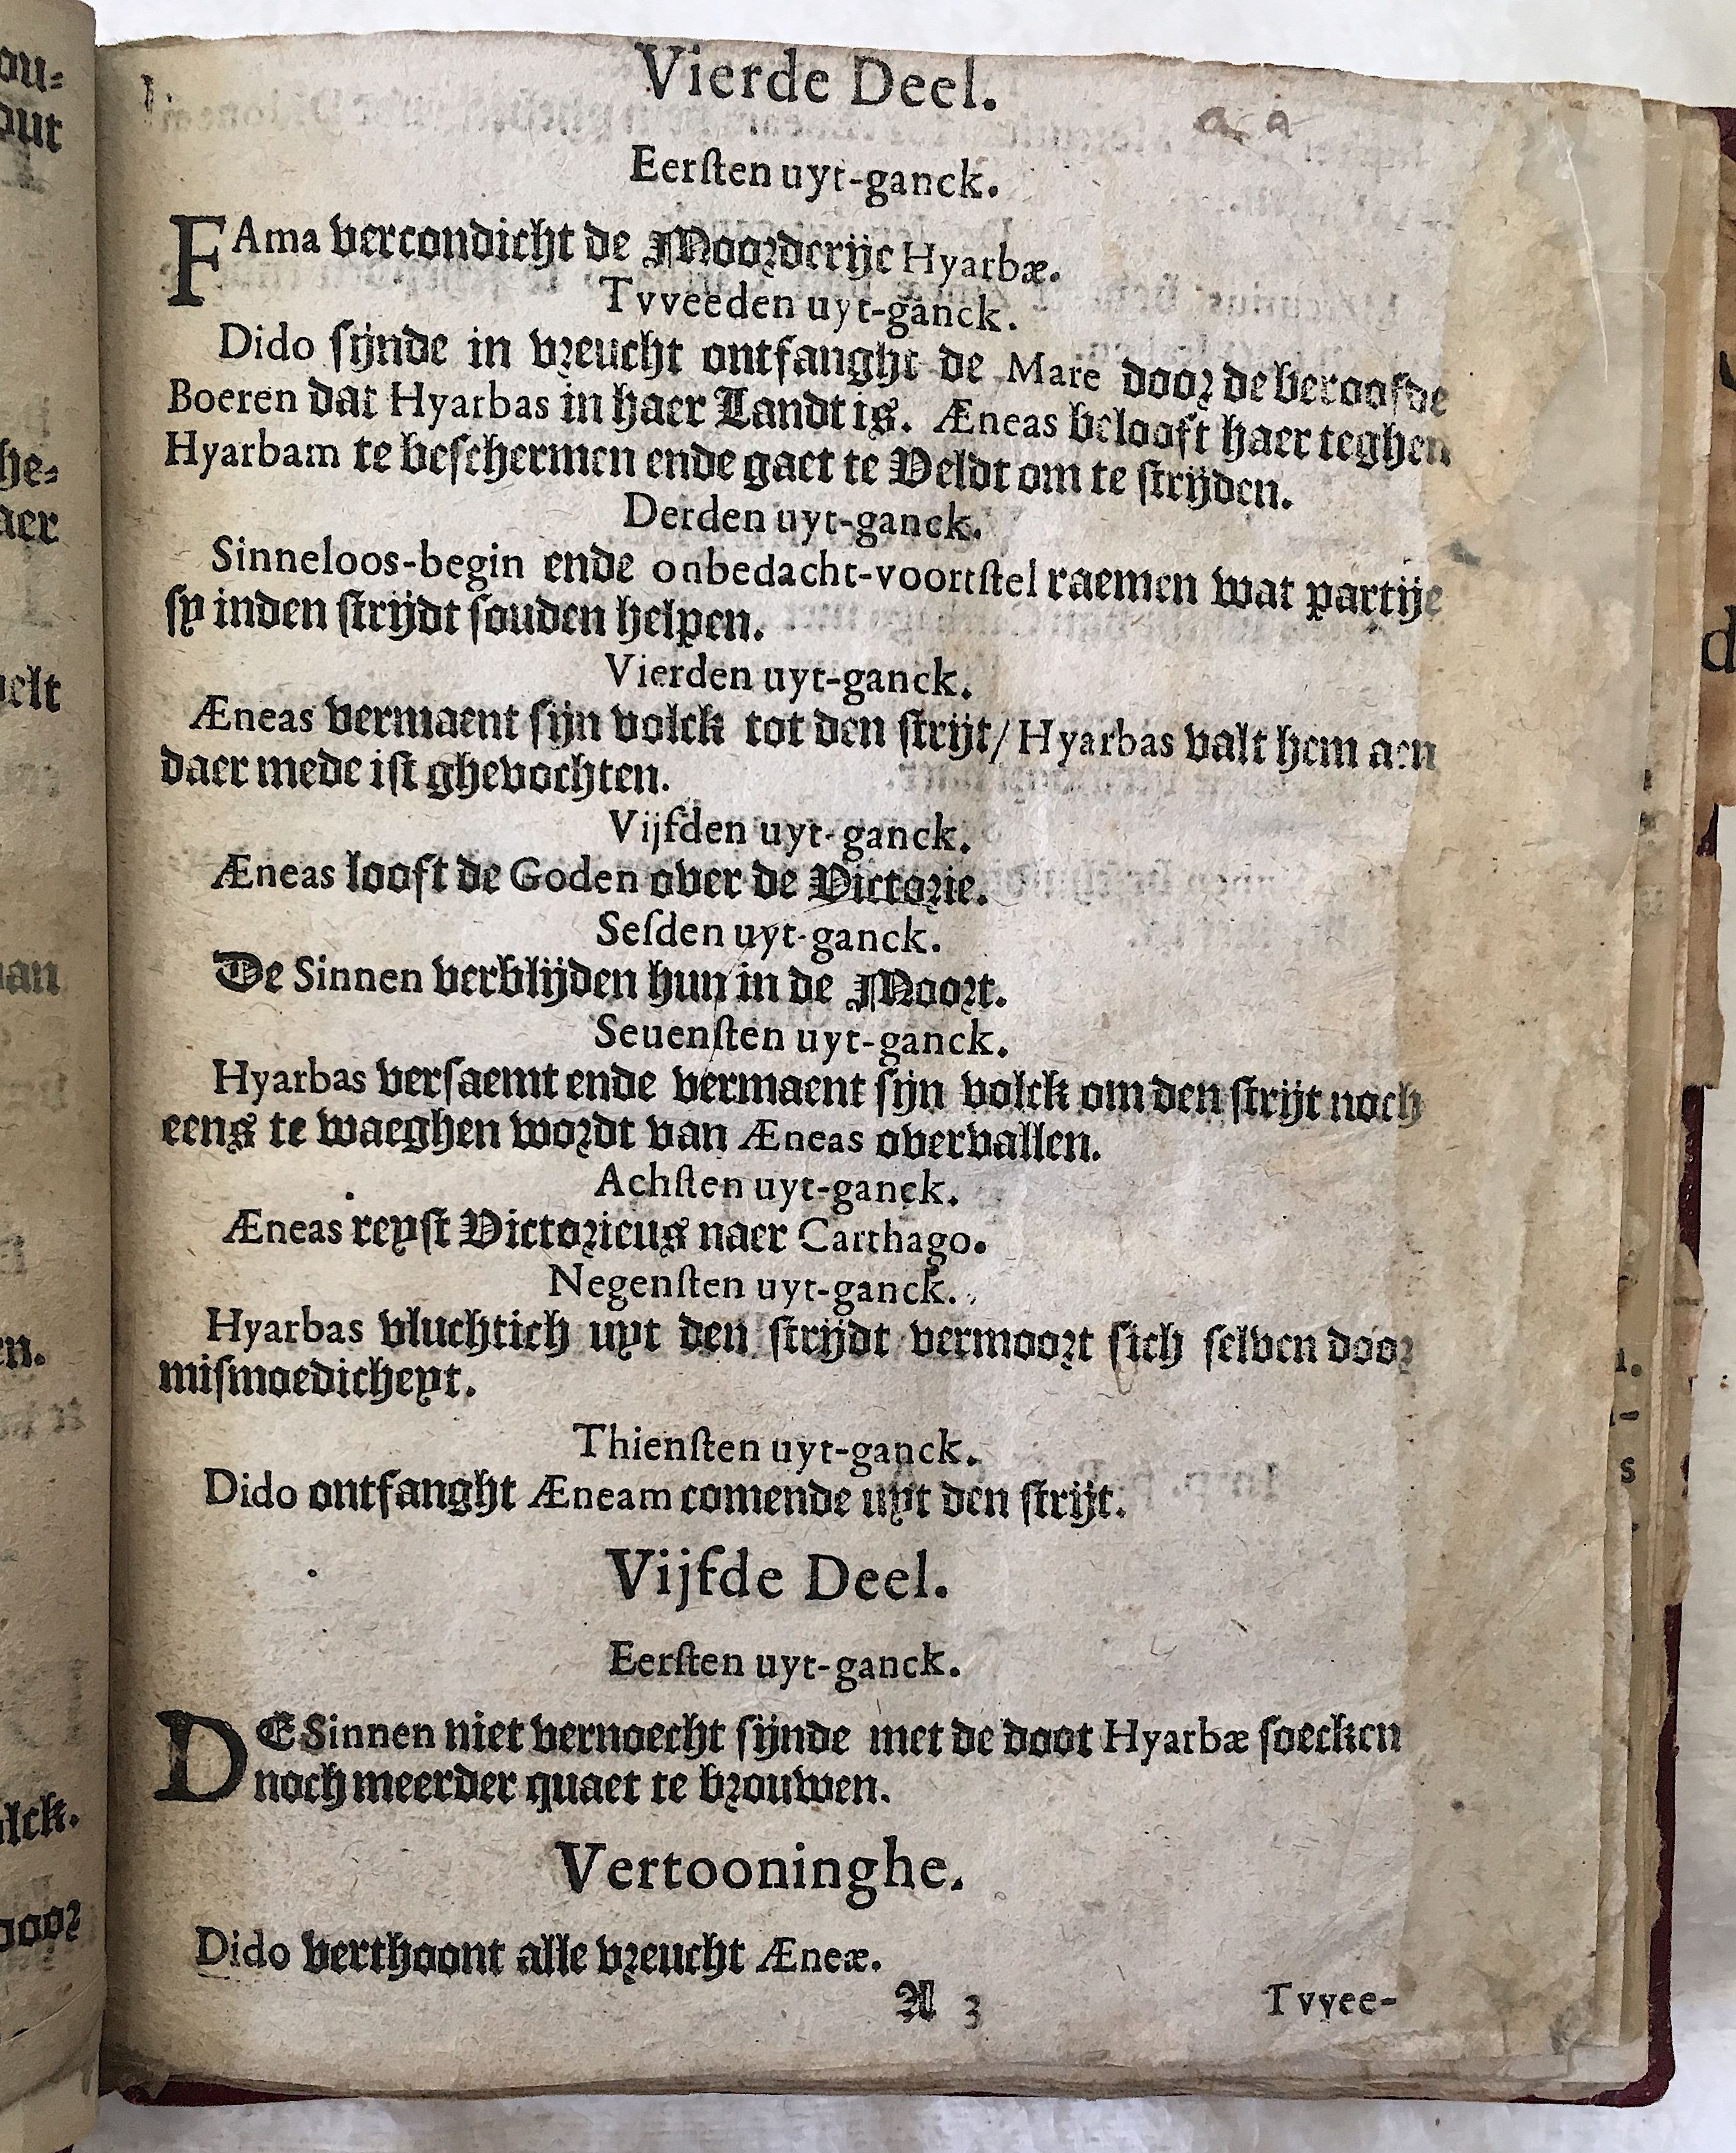 Vierde Deel.
a a
Eersten uyt-ganck.
FAma vercondicht de Moorderije Hyarbæ.
Tvveeden uyt-ganck.
Dido sijnde in vreucht ontfanght de Mare door de beroofde
Boeren dat Hyarbas in haer Landt is. Æneas belooft haer teghen
Hyarbam te beschermen ende gaet te Veldt om te strijden.
Derden uyt-ganck.
Sinneloos-begin ende onbedacht-voortstel raemen wat partije
sy inden strijdt souden helpen.
Vierden uyt-ganck.
Æneas vermaent sijn volck tot den strijt/ Hyarbas valt hem aen
daer mede ist ghevochten.
Vijfden uyt-ganck.
Æneas looft de Goden over de Victorie.
Sesden uyt-ganck.
De Sinnen verblijden hun in de Moort.
Seuensten uyt-ganck.
Hyarbas versaemt ende vermaent sijn volck om den strijt noch
eens te waeghen wordt van Æneas overvallen.
Achsten uyt-ganck.
Æneas reyst Victorieus naer Carthago.
Negensten uyt-ganck.
Hyarbas vluchtich uyt den strijdt vermoort sich selven door
mismoedicheyt.
Thiensten uyt-ganck.
Dido ontfanght Æneam comende uyt den strijt.
Vijfde Deel.
Eersten uyt-ganck.
DE Sinnen niet vernoecht sijnde met de doot Hyarbæ soecken
noch meerder quaet te brouwen.
Vertooninghe.
Dido verthoont alle vreucht Æneæ.
A 3 Tvvee-